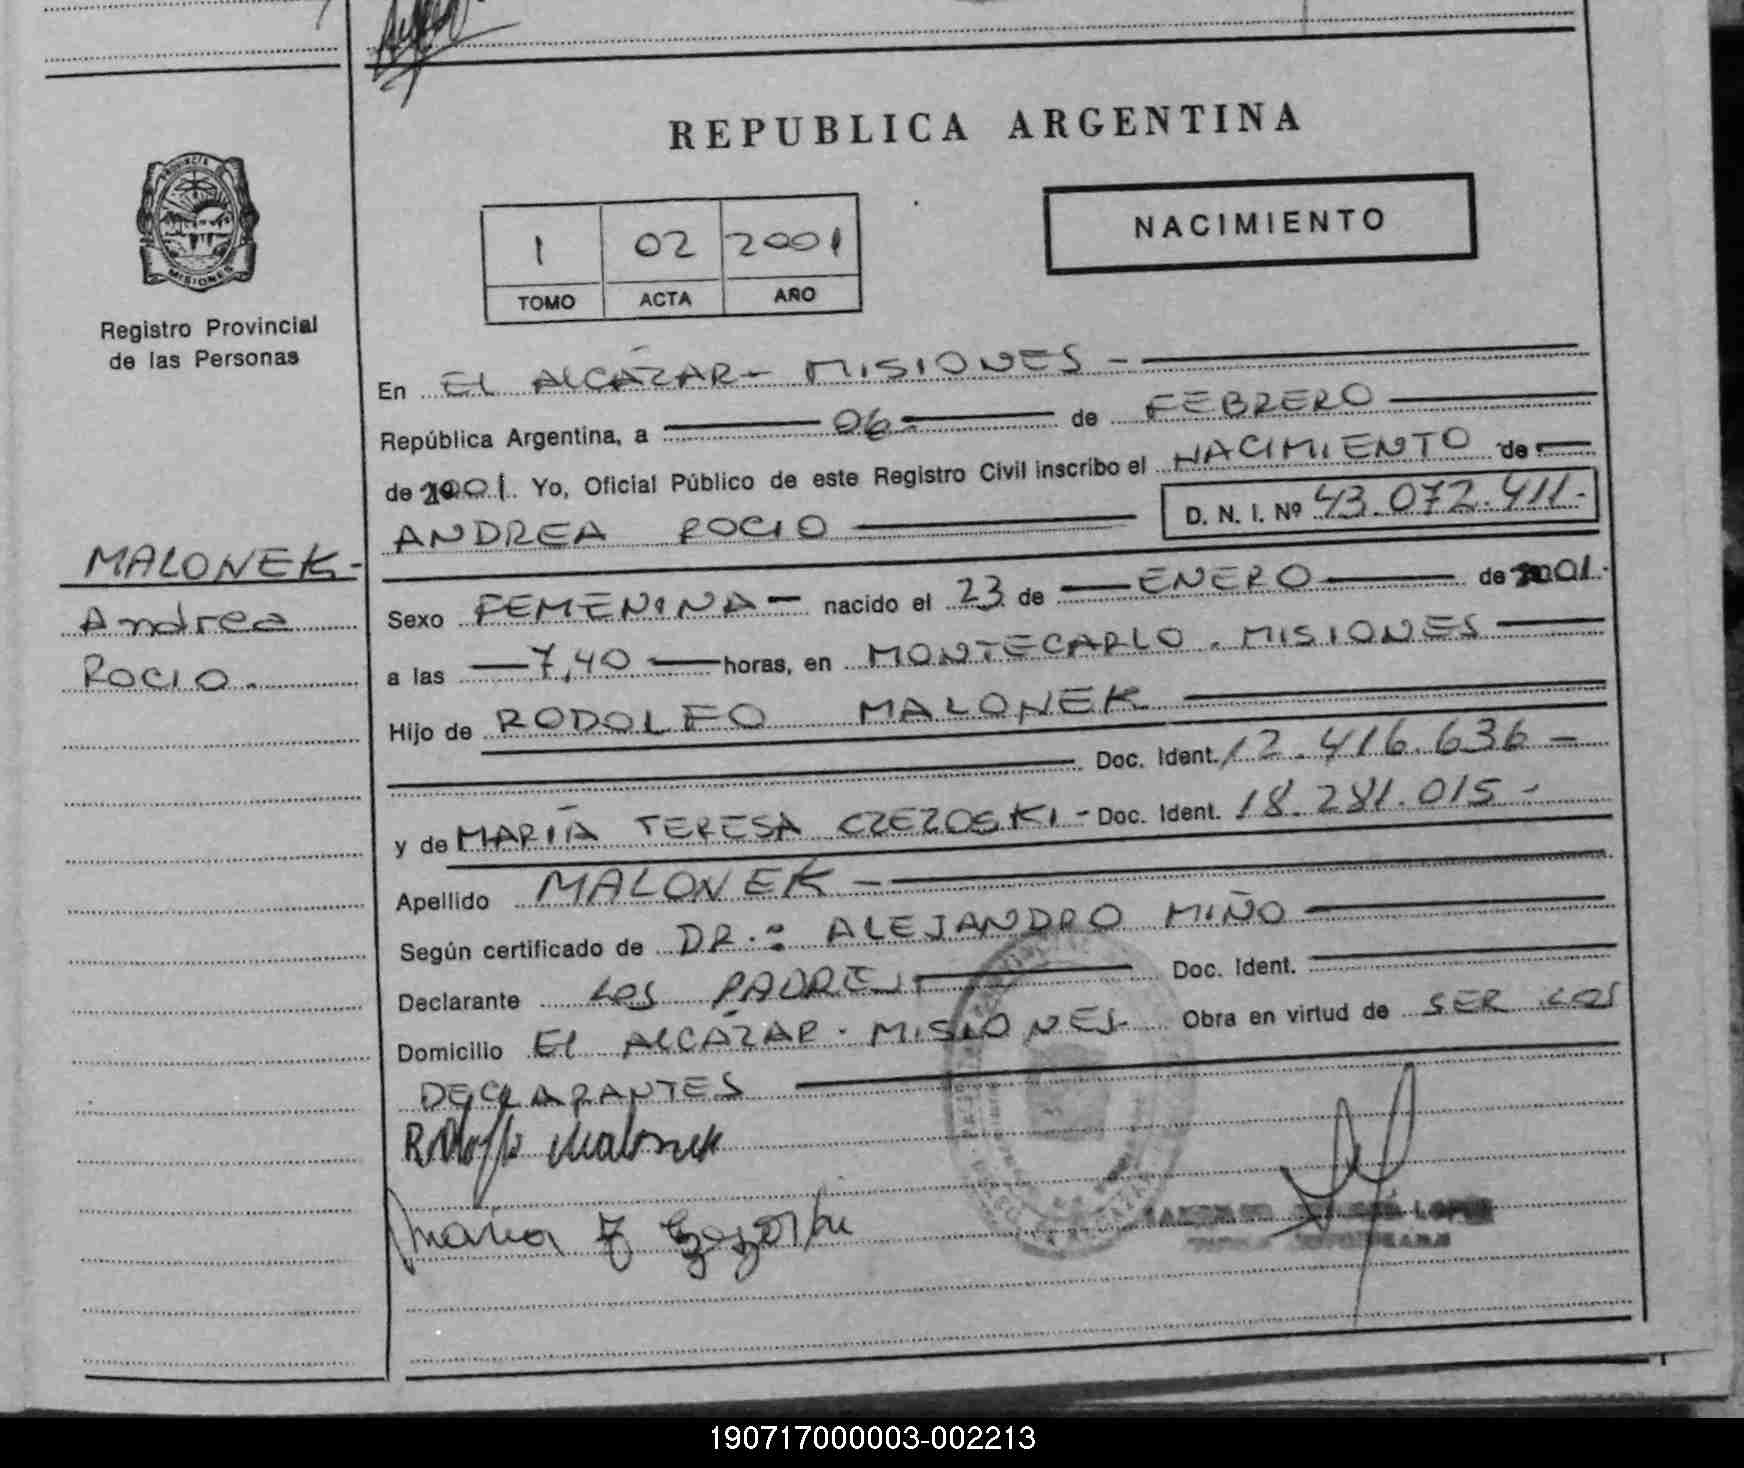 REPUBLICA ARGENTINA
PROVINCIA
MISIONES
Registro Provincial
de las Personas
1 02 2001
TOMO ACTA AÑO
NACIMIENTO
En El AlCÁZAR - MISIONES -
República Argentina, a 06 - de FEBRERO
de 2001. Yo, Oficial Público de este Registro Civil inscribo el NACIMIENTO de
ANDREA ROCIO D. N. I. Nº 43.072.411.-
MALONEK -
Andrea
ROCIO.
Sexo FEMENINA - nacido el 23 de ENERO de 2001.
a las 7,40 horas, en MONTECARLO . MISIONES
Hijo de RODOLFO MALONEK
Doc. Ident. 12.416.636 -
y de MARÍA TERESA CZEZOSKI - Doc. Ident. 18.281.015 -
Apellido MALONEK -
Según certificado de DR.: ALEJANDRO MIÑO
Declarante LOS PADRES Doc. Ident.
Domicilio El AlCÁZAR - MISIONES - Obra en virtud de SER LOS
DECLARANTES
Rodolfo Malonek
Maria T
LOPEZ
190717000003-002213